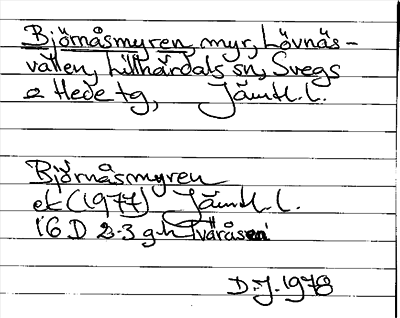 Björnåsmyren, myr, Lövnäs-
vallen, Lillhärdals sn, Svegs
o Hede tg, Jämtl. l.
Björnåsmyren
ek (1977) Jämtl. l.
16 D 2-3 g-h Tväråsen
D. J. 1978